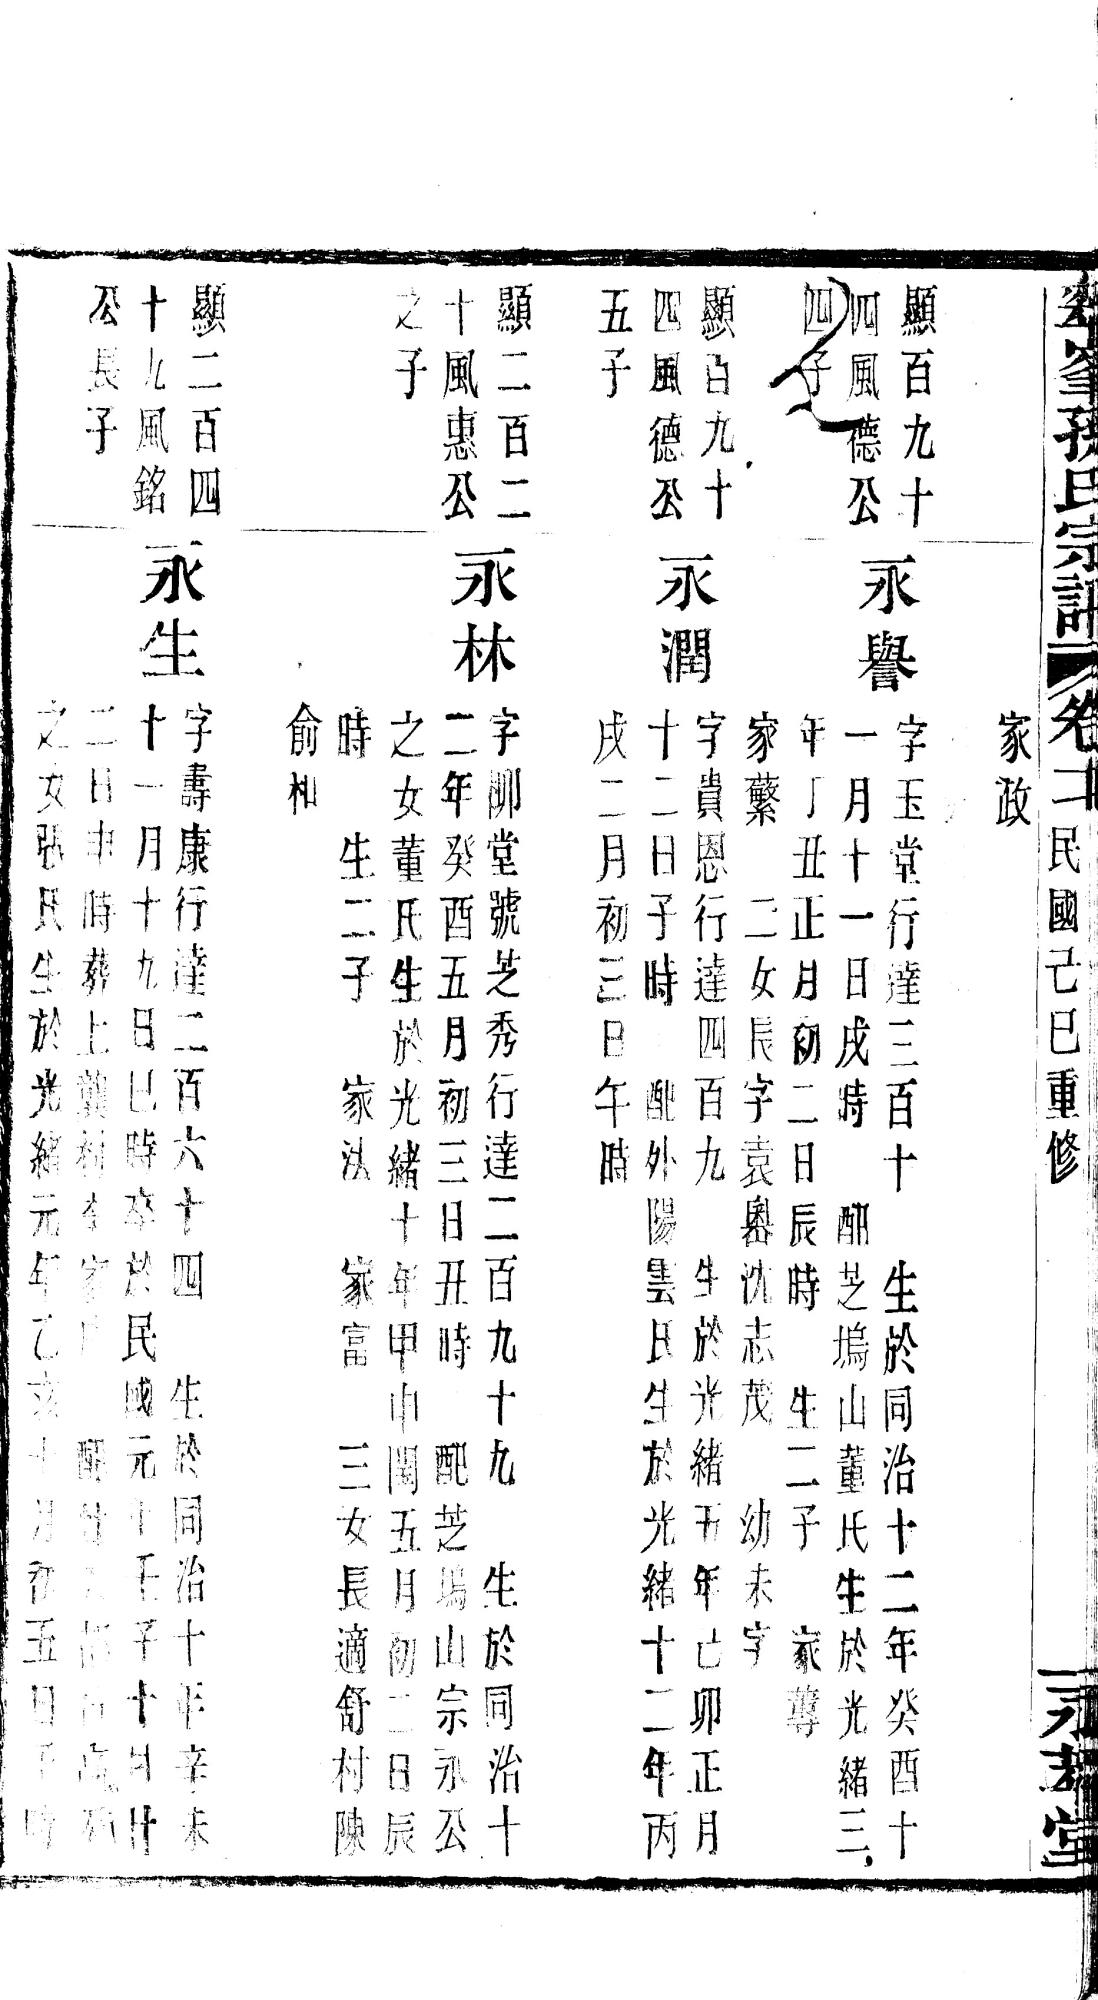 峯孫氏宗譜
卷二
民國己巳重修
永孝堂
家政
顯百九十
四風德公
四子
永譽
字玉堂行達三百十 生於同治十二年癸酉十
一月十一日戌時 配芝塢山董氏生於光緒三
年丁丑正月初二日辰時 生二子 家蓴
家蘩 二女長字袁嶴沈志茂 幼未字
顯百九十
四風德公
五子
永潤
字貴恩行達四百九 生於光緒五年己卯正月
十二日子時 配外陽雲氏生於光緒十二年丙
戌二月初三日午時
顯二百二
十風惠公
之子
永林
字柳堂號芝秀行達二百九十九 生於同治十
二年癸酉五月初三日丑時 配芝塢山宗永公
之女董氏生於光緒十年甲申閏五月初二日辰
時 生二子 家法 家富 三女長適舒村陳
俞和
顯二百四
十九風銘
公長子
永生
字壽康行達二百六十四 生於同治十年辛未
十一月十九日巳時卒於民國元年壬子十月廿
二日申時葬上龔村李家 配
之女張氏生於光緒元年乙亥十月初五日子時